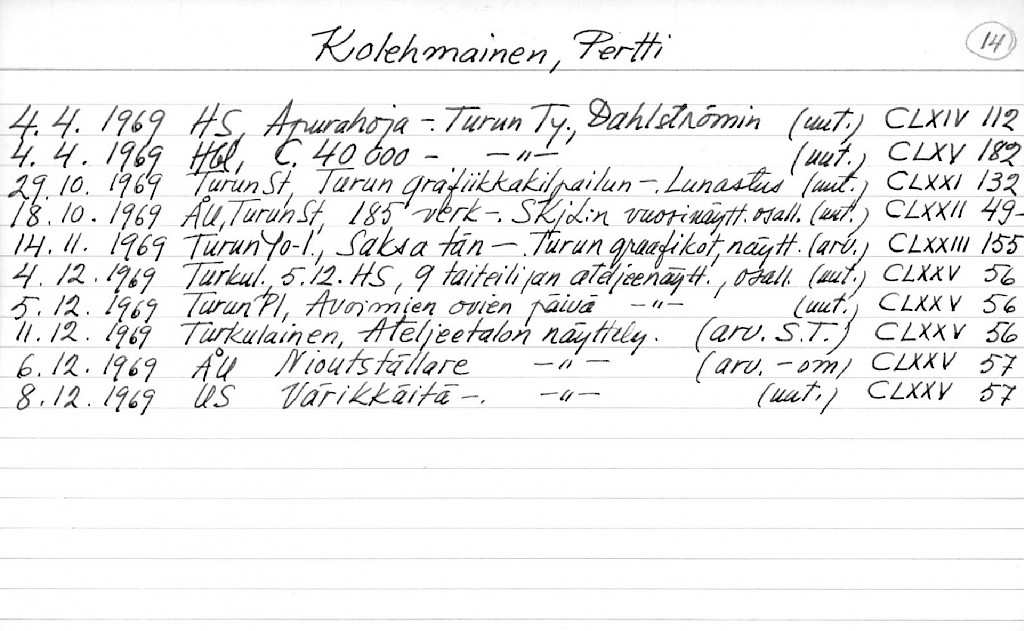 Kolehmainen, Pertti 14
4. 4. 1969 HS, Apurahoja -. Turun Ty., Dahlströmin (uut.) CLXIV 112
4. 4. 1969 Hbl, C. 40 000 - -"- (uut.) CLXV 182
29. 10. 1969 TurunSt, Turun grafiikkakilpailun -. Lunastus (uut.) CLXXI 132
18. 10. 1969 ÅU, TurunSt, 185 verk -. SKjL:n vuosinäytt. osall. (uut.) CLXXII 49-
14. 11. 1969 TurunYo-l., Saksa tän - Turun graafikot, näytt. (arv.) CLXXIII 155
4. 12. 1969 Turkul. 5.12. HS, 9 taiteilijan ateljeenäytt., osall. (uut.) CLXXV 56
5. 12. 1969 TurunPl, Avoimien ovien päivä -"- (uut.) CLXXV 56
11. 12. 1969 Turkulainen, Ateljeetalon näyttely. (arv. S.T.) CLXXV 56
6. 12. 1969 ÅU Nioutställare -"- (arv. -om) CLXXV 57
8. 12. 1969 US Värikkäitä -. -"- (uut.) CLXXV 57